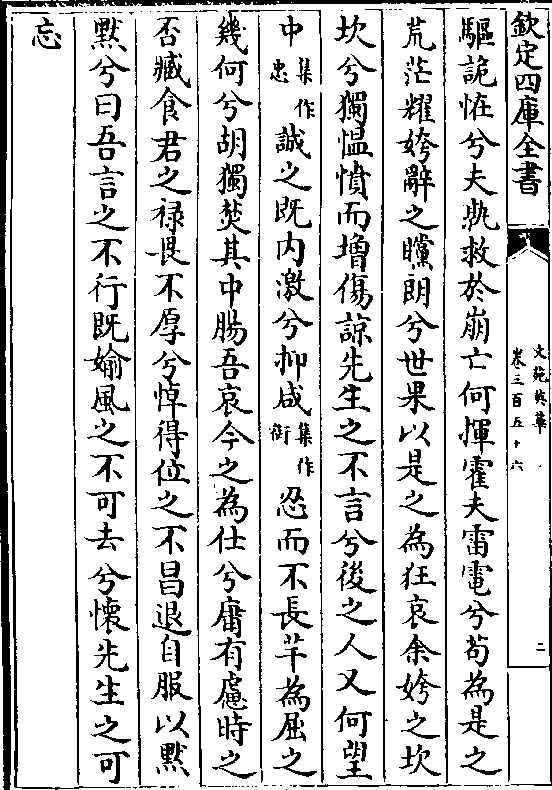 欽定四庫全書
文苑英華
卷三百五十六
二
驅詭恠兮夫孰救於崩亡何揮霍夫雷電兮苟為是之
荒茫耀姱辭之矘朗兮世果以是之為狂哀余姱之坎
坎兮獨愠憤而增傷諒先生之不言兮後之人又何望
中集作忠誠之既内激兮抑咸集作銜忍而不長芊為屈之
幾何兮胡獨焚其中腸吾哀今之為仕兮庸有慮時之
否臧食君之禄畏不厚兮悼得位之不昌退自服以黙
黙兮曰吾言之不行既媮風之不可去兮懷先生之可
忘